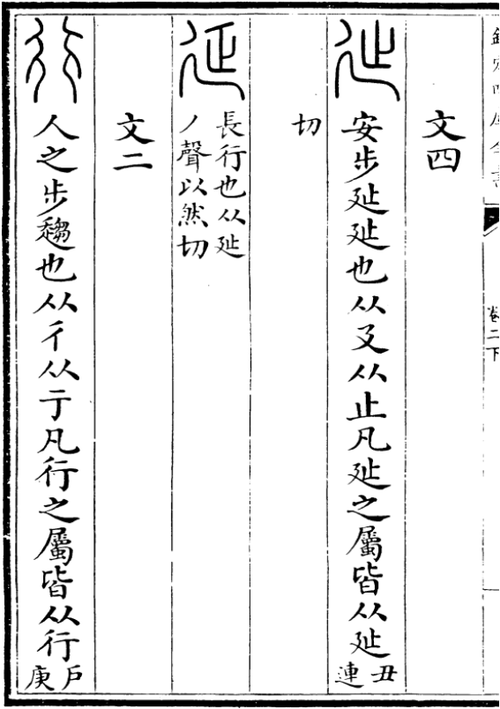 欽定四庫全書
卷二下
文四
㢟 安步㢟㢟也从廴从止凡㢟之屬皆从㢟丑連
切
延 長行也从㢟
丿聲以然切
文二
行 人之步趨也从彳从亍凡行之屬皆从行戶庚